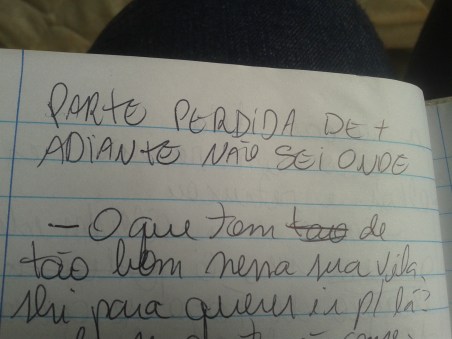 PARTE PERDIDA DE +
ADIANTE NÃO SEI ONDE
— O que tem tao de
tão bom nessa sua vida,
para querer ir p/ lá?